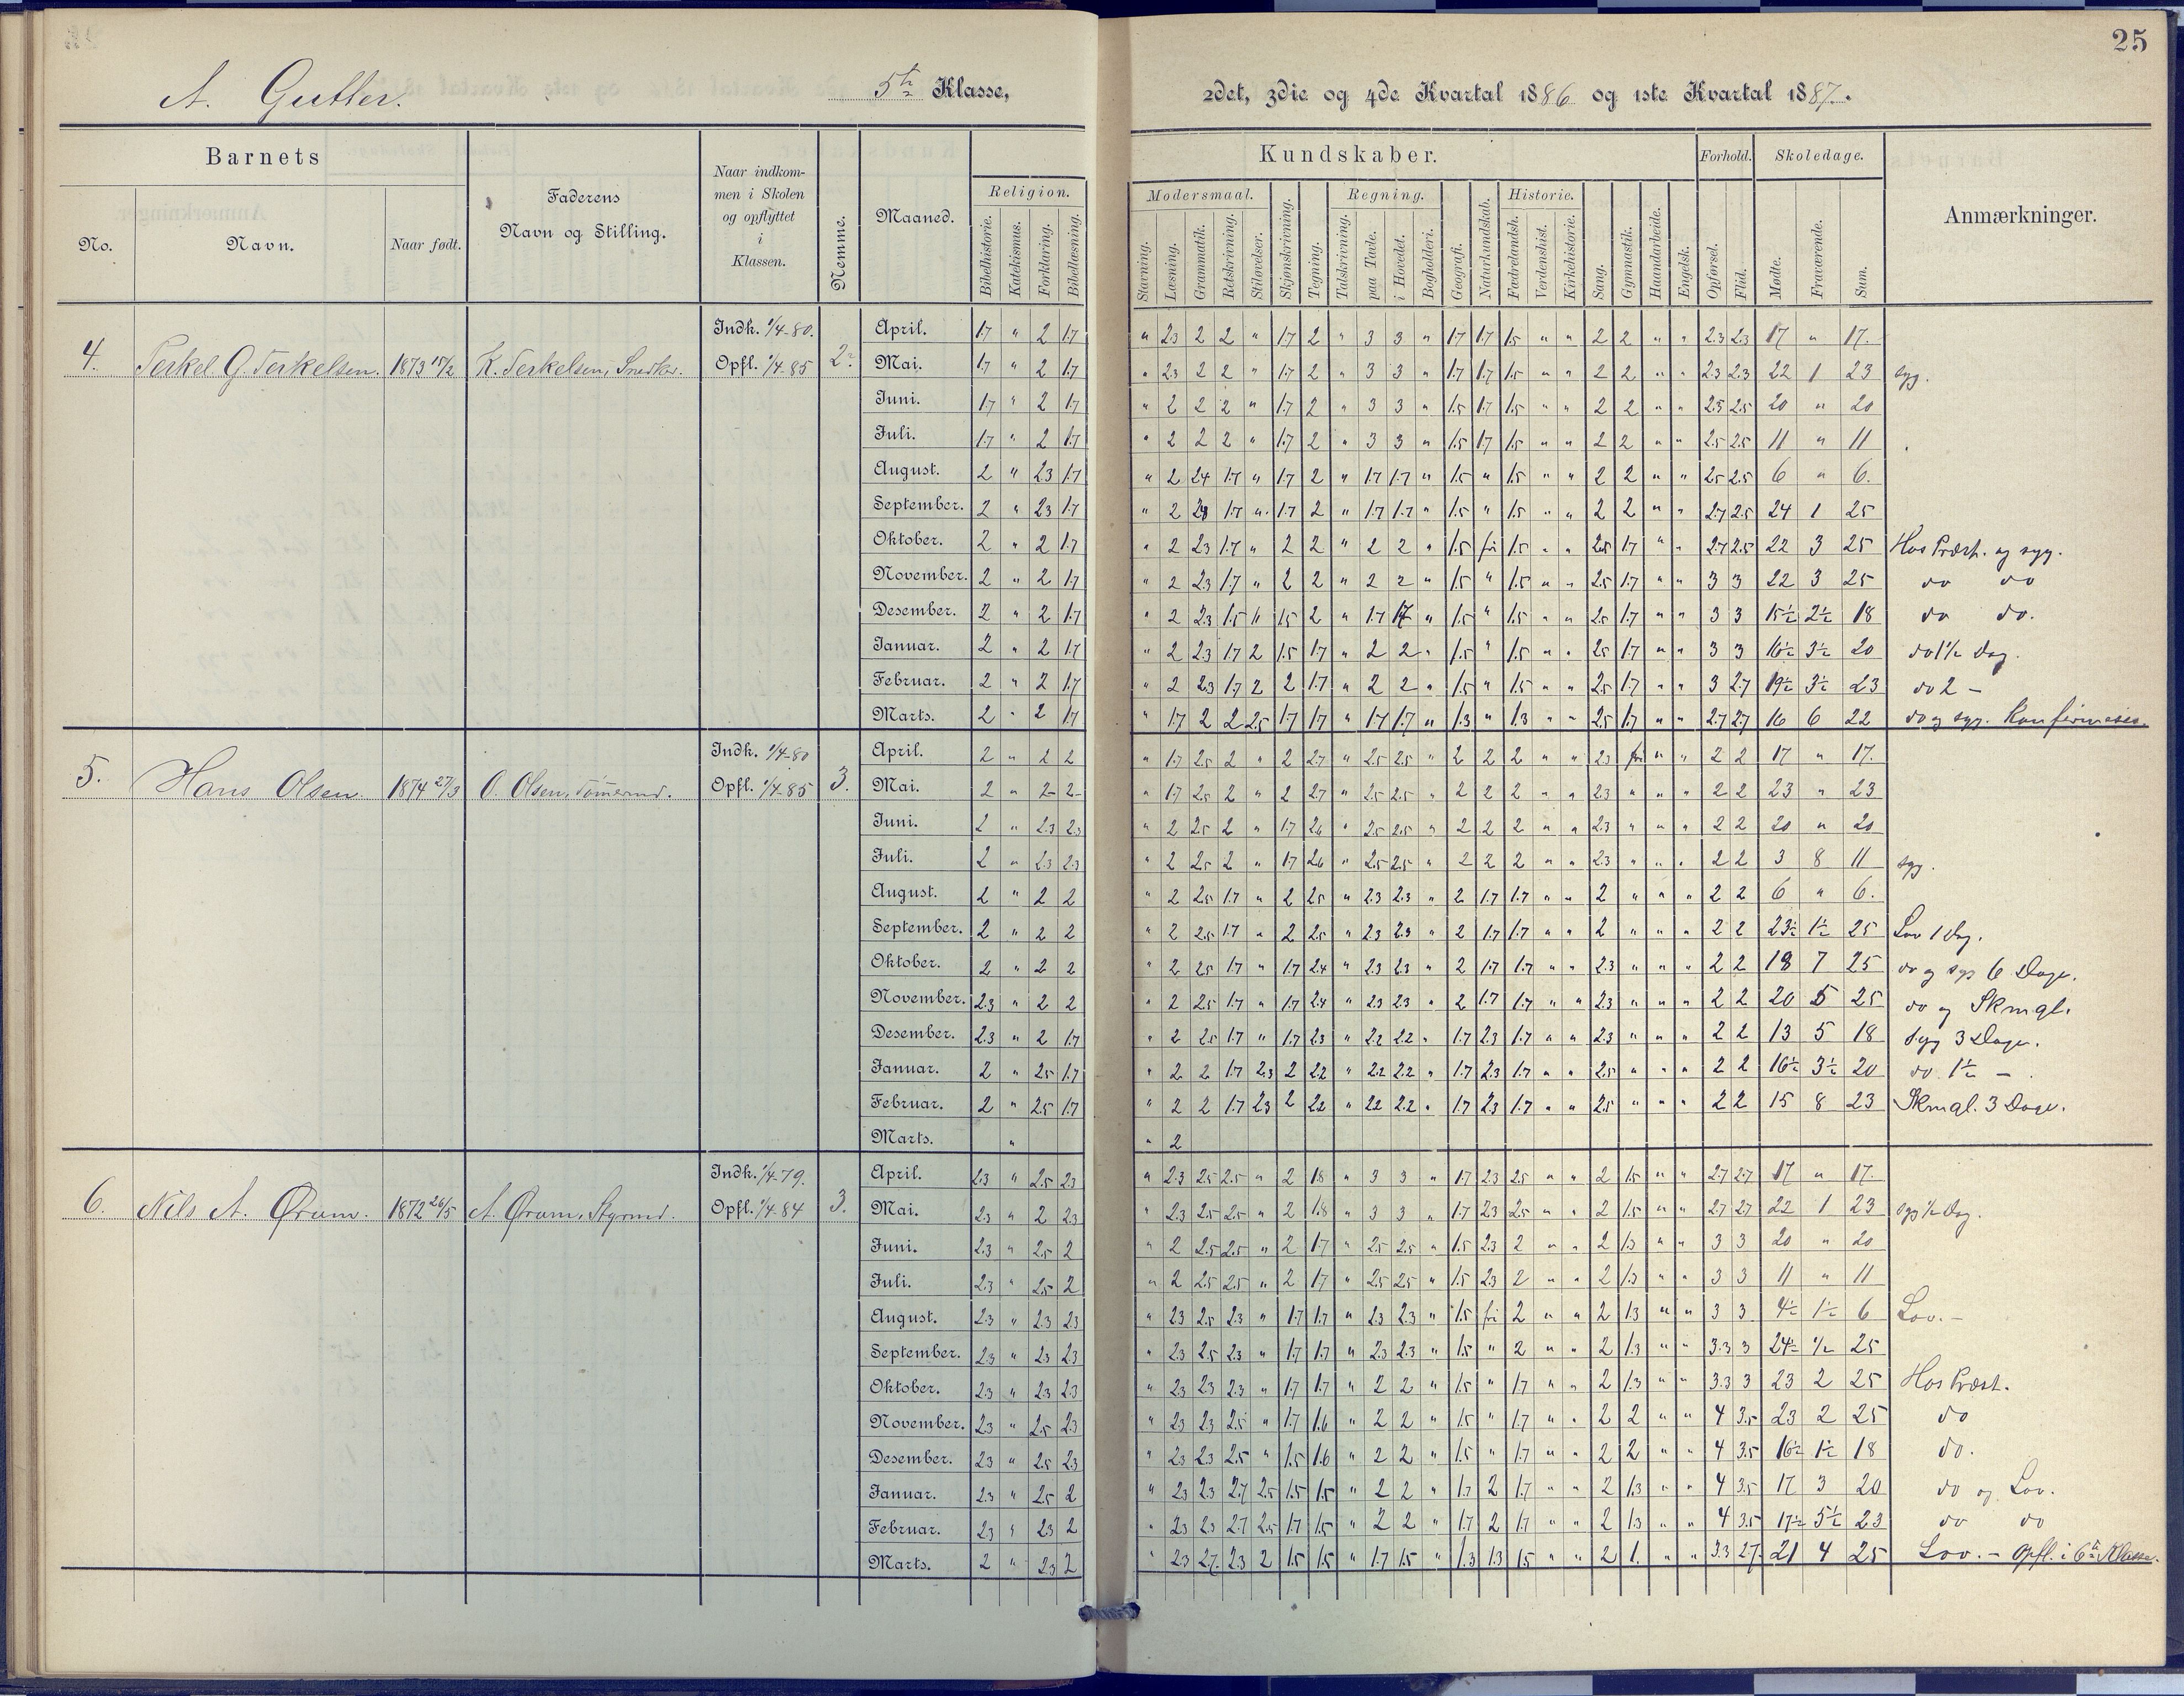 25
A. Gutter. 5te Klasse, 2det, 3die og 4de Kvartal 1886 og 1ste Kvartal 1887.
Barnets
No. Navn. Naar født.
Faderens Navn og Stilling.
Naar indkommen i Skolen og opflyttet i Klassen.
Nemme. Maaned.
Kundskaber.
Religion. Bibelhistorie. Katekismus. Forklaring. Bibellæsning.
Modersmaal. Stavning. Læsning. Grammatik. Retskrivning. Stiløvelser.
Skjønskrivning. Tegning.
Regning. Talskrivning. paa Tavle. i Hovedet. Bogholderi.
Geografi. Naturkundskab.
Historie. Fædrelandsh. Verdenshist. Kirkehistorie.
Sang. Gymnastik. Haandarbeide. Engelsk.
Forhold. Opførsel. Flid.
Skoledage. Mødte. Fraværende. Sum.
Anmærkninger.
4. Terkel G. Terkelsen. 1873 15/2 K. Terkelsen, Snedker. Indk. 1/4-80. Opfl. 1/4-85 2
April. 1.7 " 2 1.7 " 2.3 2 2 " 1.7 2 " 3 3 " 1.7 1.7 1.5 " " 2 2 " " 2.3 2.3 17 " 17.
Mai. 1.7 " 2 1.7 " 2.3 2 2 " 1.7 2 " 3 3 " 1.7 1.7 1.5 " " 2 2 " " 2.3 2.3 22 1 23 syg.
Juni. 1.7 " 2 1.7 " 2 2 2 " 1.7 2 " 3 3 " 1.5 1.7 1.5 " " 2 2 " " 2.5 2.5 20 " 20
Juli. 1.7 " 2 1.7 " 2 2 2 " 1.7 2 " 3 3 " 1.5 1.7 1.5 " " 2 2 " " 2.5 2.5 11 " 11
August. 2 " 2.3 1.7 " 2 2.4 1.7 " 1.7 2 " 1.7 1.7 " 1.5 " 1.5 " " 2 2 " " 2.5 2.5 6 " 6.
September. 2 " 2.3 1.7 " 2 1.7 " 1.7 2 " 1.7 1.7 " 1.5 " 1.5 " " 2 2 " " 2.7 2.5 24 1 25
Oktober. 2 " 2 1.7 " 2 2.3 1.7 " 2 2 " 2 2 " 1.5 fri 1.5 " " 2.5 1.7 " " 2.7 2.5 22 3 25 Hos Præst. og syg.
November. 2 " 2 1.7 " 2 2.3 1.7 " 2 2 " 2 2 " 1.5 " 1.5 " " 2.5 1.7 " " 3 3 22 3 25 do do
Desember. 2 " 2 1.7 " 2 2.3 1.5 " 1.5 2 " 1.7 1.7 " 1.5 " 1.5 " " 2.5 1.7 " " 3 3 15½ 2½ 18 do do.
Januar. 2 " 2 1.7 " 2 2.3 1.7 2 1.5 1.7 " 2 2 " 1.5 " 1.5 " " 2.5 1.7 " " 3 3 16½ 3½ 20 do 1½ Dag.
Februar. 2 " 2 1.7 " 2 2.3 1.7 2 2 1.7 " 2 2 " 1.5 " 1.5 " " 2.5 1.7 " " 3 2.7 19½ 3½ 23 do 2 -
Marts. 2 " 2 1.7 " 1.7 2 2 2.5 1.7 1.7 " 1.7 1.7 " 1.3 " 1.3 " " 2.5 1.7 " " 2.7 2.7 16 6 22 do og syg. Konfirmeres.
5. Hans Olsen. 1874 27/3 O. Olsen, Tømmermd. Indk. 1/4-80 Opfl. 1/4-85 3.
April. 2 " 2 2 " 1.7 2.5 2 " 2 2.7 " 2.5 2.5 " 2 2 2 " " 2.3 fri " " 2 2 17 " 17.
Mai. 2 " 2 2 " 1.7 2.5 2 " 2 2.7 " 2.5 2.5 " 2 2 2 " " 2.3 " " " 2 2 23 " 23
Juni. 2 " 2.3 2.3 " 2 2.5 2 " 1.7 2.6 " 2.5 2.5 " 2 2 2 " " 2.3 " " " 2 2 20 " 20
Juli. 2 " 2.3 2.3 " 2 2.5 2 " 1.7 2.6 " 2.5 2.5 " 2 2 2 " " 2.3 " " " 2 2 3 8 11 syg.
August. 2 " 2 2 " 2 2.5 1.7 " 2 2.5 " 2.3 2.3 " 2 1.7 1.7 " " 2 " " " 2 2 6 " 6.
September. 2 " 2 2 " 2 2.5 1.7 " 2 2.5 " 2.3 2.3 " 2 1.7 1.7 " " 2 " " " 2 2 23½ 1½ 25 Lov 1 Dag.
Oktober. 2 " 2 2 " 2 2.5 1.7 " 1.7 2.4 " 2.3 2.3 " 2 1.7 1.7 " " 2.3 " " " 2 2 18 7 25 do og syg 6 Dage.
November. 2.3 " 2 2 " 2 2.5 1.7 " 1.7 2.4 " 2.3 2.3 " 2 1.7 1.7 " " 2.3 " " " 2 2 20 5 25 do og Skmgl.
Desember. 2.3 " 2 1.7 " 2 2.5 1.7 " 1.7 2.3 " 2.2 2.2 " 1.7 2.3 1.7 " " 2.3 " " " 2 2 13 5 18 Syg 3 Dage.
Januar. 2 " 2.5 1.7 " 2 2 1.7 2.3 2 2.2 " 2.2 2.2 " 1.7 2.3 1.7 " " 2.5 " " " 2 2 16½ 3½ 20 do. 1½ -
Februar. 2 " 2.5 1.7 " 2 2 1.7 2.3 2 2.2 " 2.2 2.2 " 1.7 2.3 1.7 " " 2.5 " " " 2 2 15 8 23 Skmgl. 3 Dage.
Marts. " " 2
6. Nils A. Ørum. 1872 26/5 A. Ørum, Styrmd. Indk. 1/4-79. Opfl. 1/4-84 3.
April. 2.3 " 2.5 2.3 " 2.3 2.5 2.5 " 2 1.8 " 3 3 " 1.7 2.3 2.5 " " 2 1.5 " " 2.7 2.7 17 " 17.
Mai. 2.3 " 2 2.3 " 2.3 2.5 2.5 " 2 1.8 " 3 3 " 1.7 2.3 2.5 " " 2 1.5 " " 2.7 2.7 22 1 23 syg ½ Dag.
Juni. 2.3 " 2.5 2 " 2 2.5 2.5 " 2 1.7 " 2.5 2.5 " 1.5 2.3 2 " " 2 1.3 " " 3 3 20 " 20
Juli. 2.3 " 2.5 2 " 2 2.5 2.5 " 2 1.7 " 2.5 2.5 " 1.5 2.3 2 " " 2 1.3 " " 3 3 11 " 11
August. 2.3 " 2.3 2.3 " 2.3 2.5 2.3 " 1.7 1.7 " 2.3 2.3 " 1.5 fri 2 " " 2 1.3 " " 3 3 4½ 1½ 6 Lov. -
September. 2.3 " 2.3 2.3 " 2.3 2.5 2.3 " 1.7 1.7 " 2.3 2.3 " 1.5 " 2 " " 2 1.3 " " 3.3 3 24½ ½ 25
Oktober. 2.3 " 2.3 2.3 " 2.3 2.3 2.3 " 1.7 1.7 " 2 2 " 1.5 " 1.7 " " 2 1.3 " " 3.3 3 23 2 25 Hos Præst.
November. 2.3 " 2.5 2.3 " 2.3 2.3 2.5 " 1.7 1.6 " 2 2 " 1.5 " 1.7 " " 2 2 " " 4 3.5 23 2 25 do
Desember. 2.3 " 2.5 2.3 " 2.3 2.3 2.5 " 1.5 1.6 " 2 2 " 1.5 " 1.7 " " 2 2 " " 4 3.5 16½ 1½ 18 do.
Januar. 2.3 " 2.5 2 " 2.3 2.3 2.7 2.5 1.5 1.5 " 2 2 " 1.7 2 1.7 " " 2 1.3 " " 4 3.5 17 3 20 do og Lov.
Februar. 2.3 " 2.3 2 " 2.3 2.3 2.7 2.5 1.7 1.5 " 2 2 " 1.7 2 1.7 " " 2 1.3 " " 4 3.5 17½ 5½ 23 do do
Marts. 2 " 2.3 2 " 2.3 2.7. 2.3 2 1.5 1.5 " 1.7 1.5 " 1.3 1.3 1.5 " " 2 1. " " 3.3 2.7 21 4 25 Lov. - Opfl. i 6te Klasse.